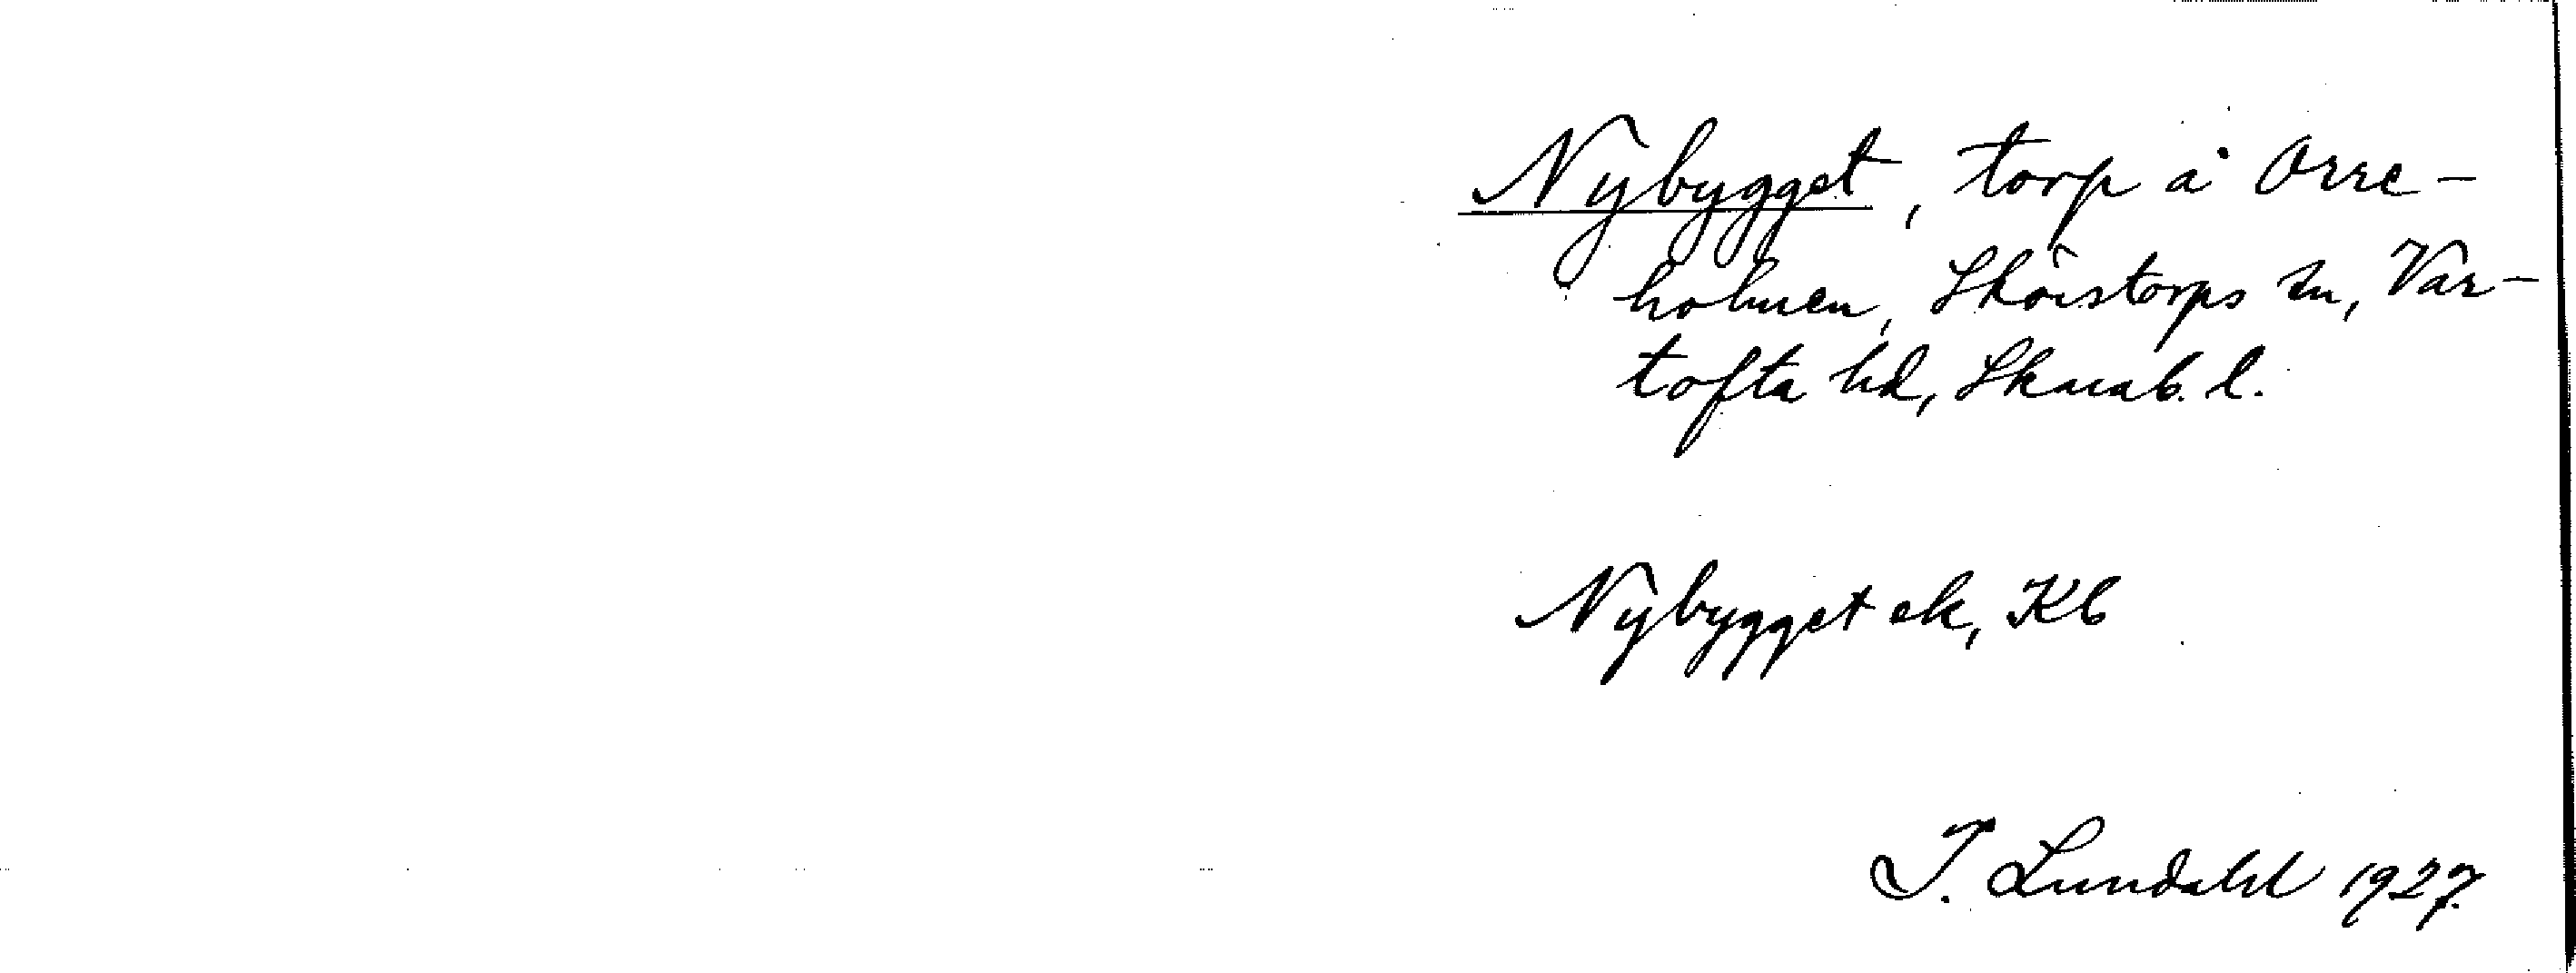 Nybygget, torp å Orre-
holmen, Skörstorps sn, Var-
tofta hd, Skarab. l.
Nybygget ek, Kb
I. Lundahl 1927.